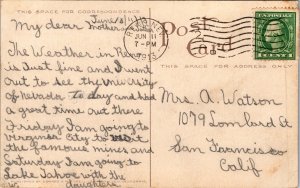 THIS SPACE FOR CORRESPONDENCE
My dear mother
June/13
The Weather in Reno
is Just fine and I went
out to see the University
of Nevada to day and had
a great time out there
Friday I am going to
Virginia City to visit
the famous mines and
Saturday I am going to
Lake Tahoe with the
daughters
JUN 11
7-PM
1913
Post
Card
THIS SPACE FOR ADDRESS ONLY
Mrs. A. Watson
1079 Lombard St
San Francisco
Calif